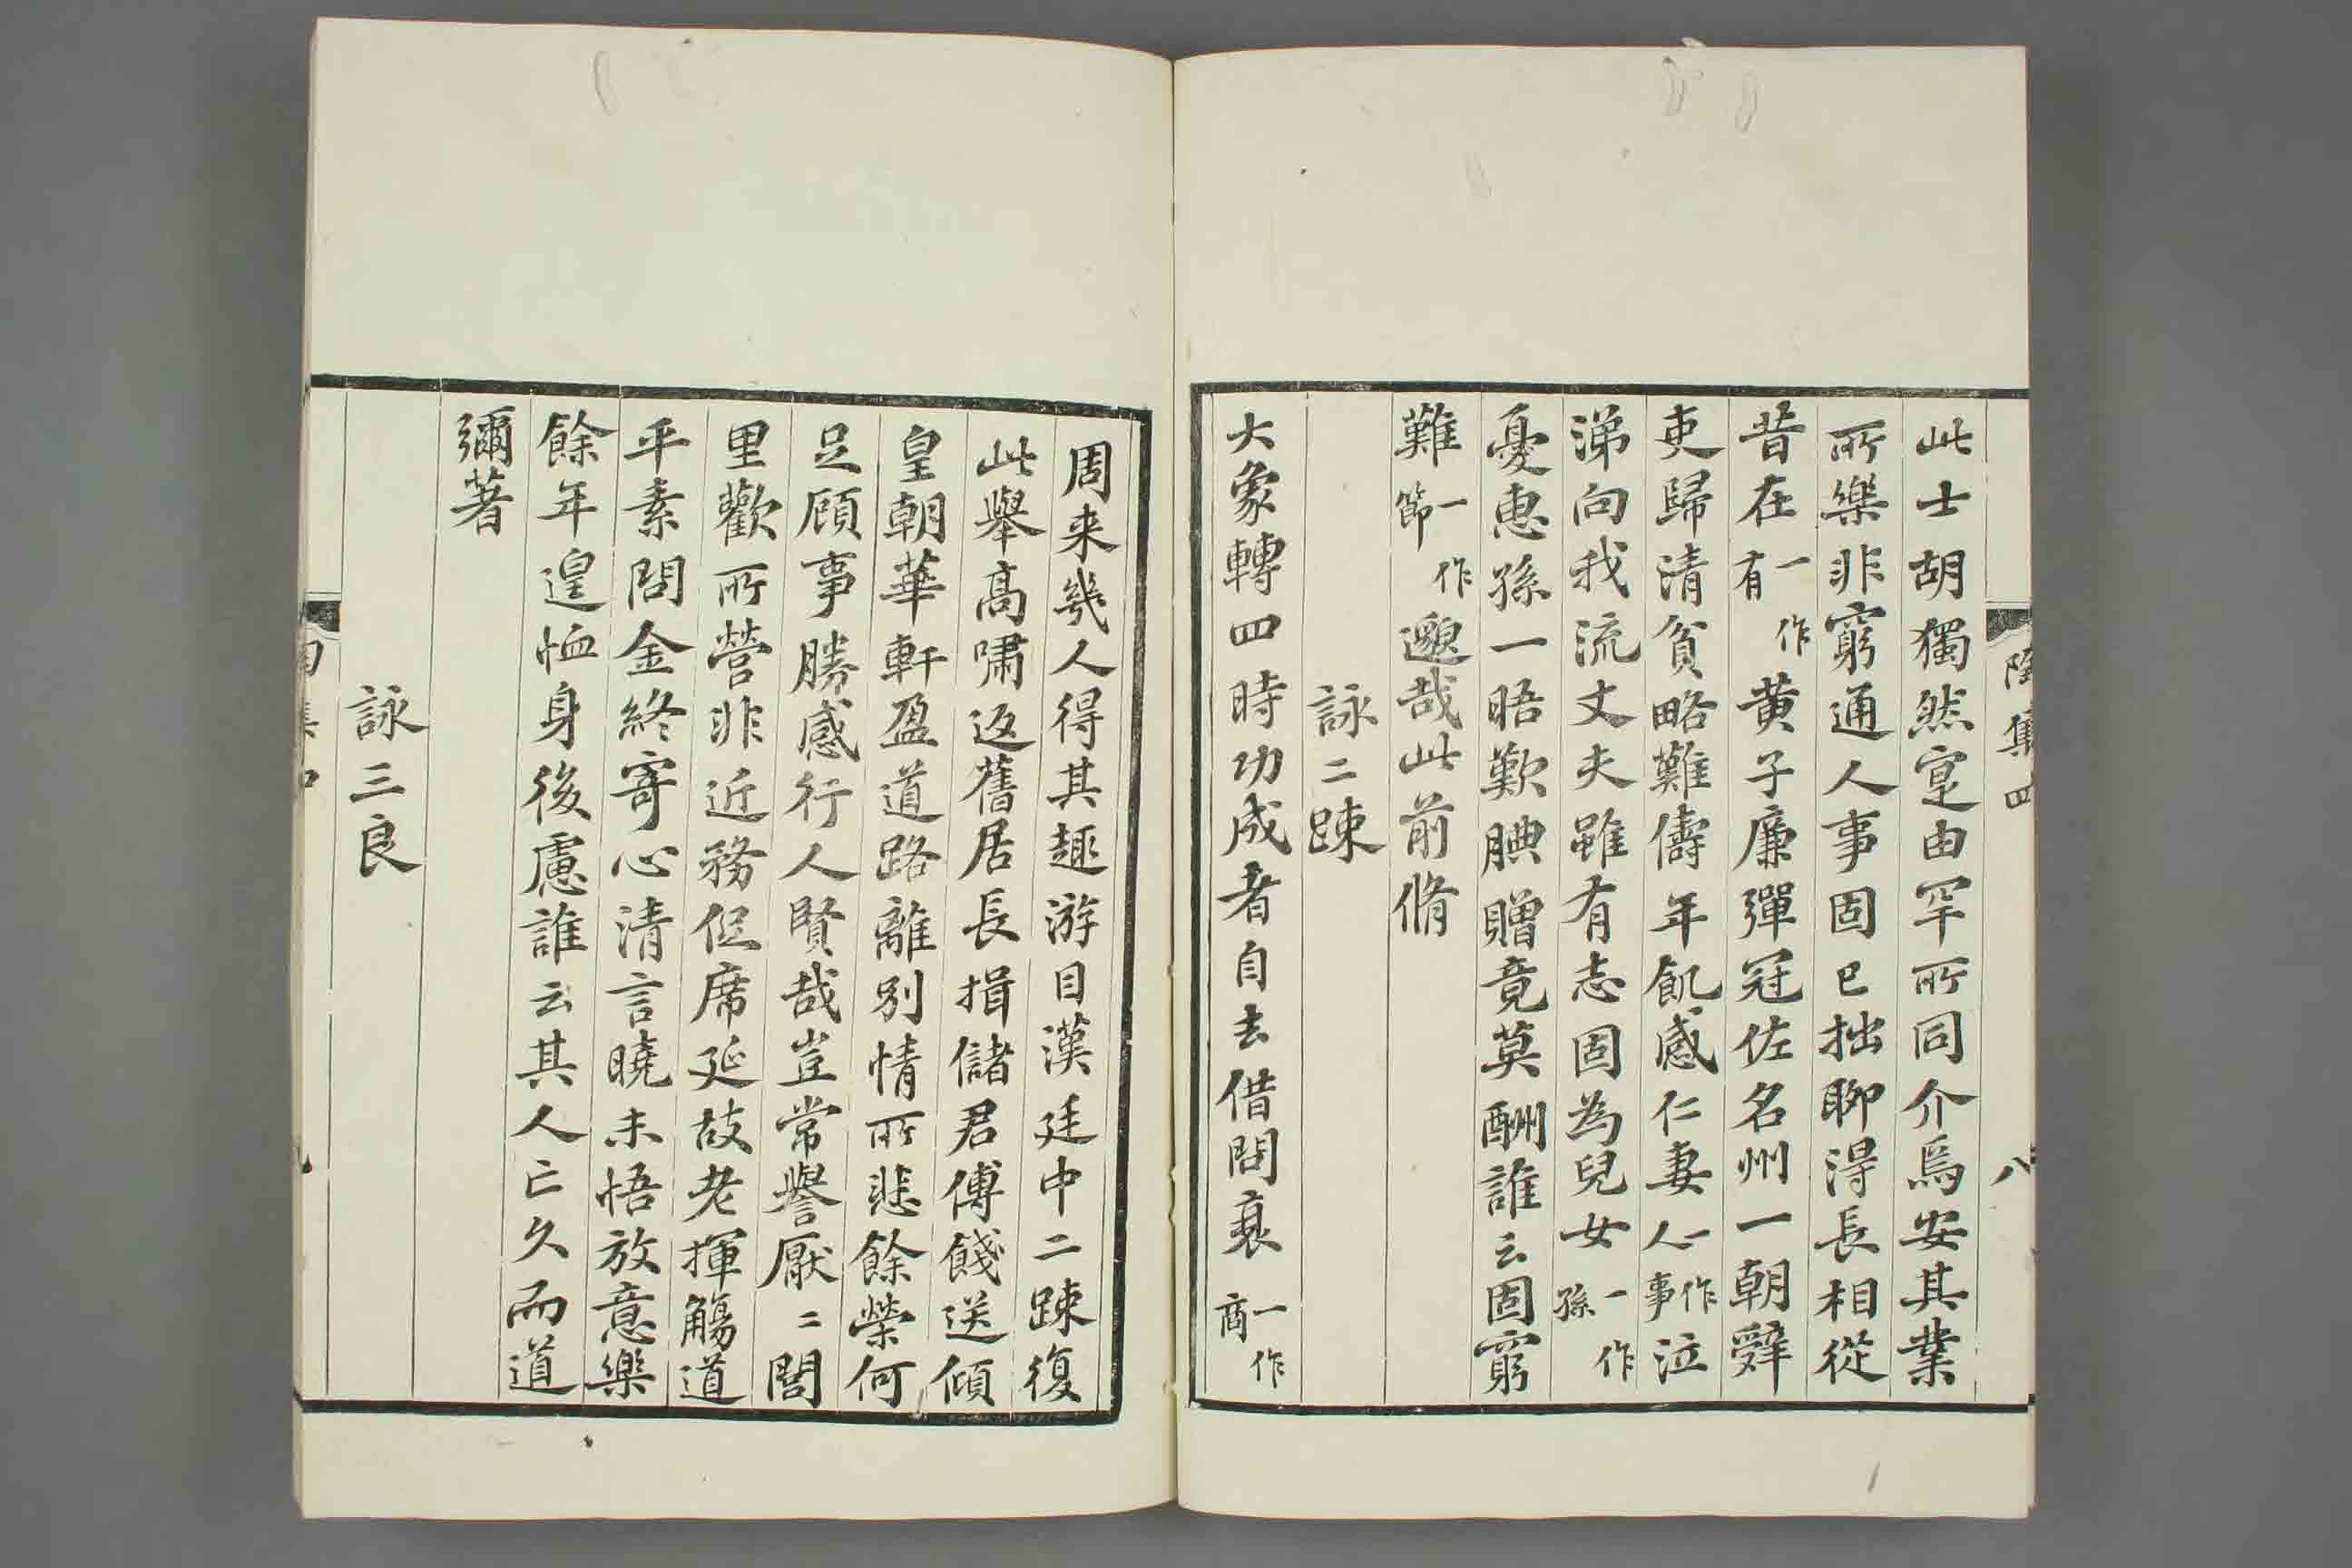 陶集四 八
此士胡獨然寔由罕所同介焉安其業
所樂非窮通人事固已拙聊得長相從
昔在一作有黃子廉彈冠佐名州一朝辤
吏歸清貧略難儔年飢感仁妻一作人事泣
涕向我流丈夫雖有志固為兒女一作孫
憂惠孫一晤歎腆贈竟莫酬誰云固窮
難一作節邈哉此前脩
詠二疎
大象轉四時功成者自去借問衰一作商
周来幾人得其趣游目漢廷中二疎復
此舉高嘯返舊居長揖儲君傅餞送傾
皇朝華軒盈道路離別情所悲餘榮何
足顧事勝感行人賢哉豈常譽厭二閭
里歡所營非近務促席延故老揮觴道
平素問金終寄心清言曉未悟放意樂
餘年遑恤身後慮誰云其人亡久而道
彌著
詠三良